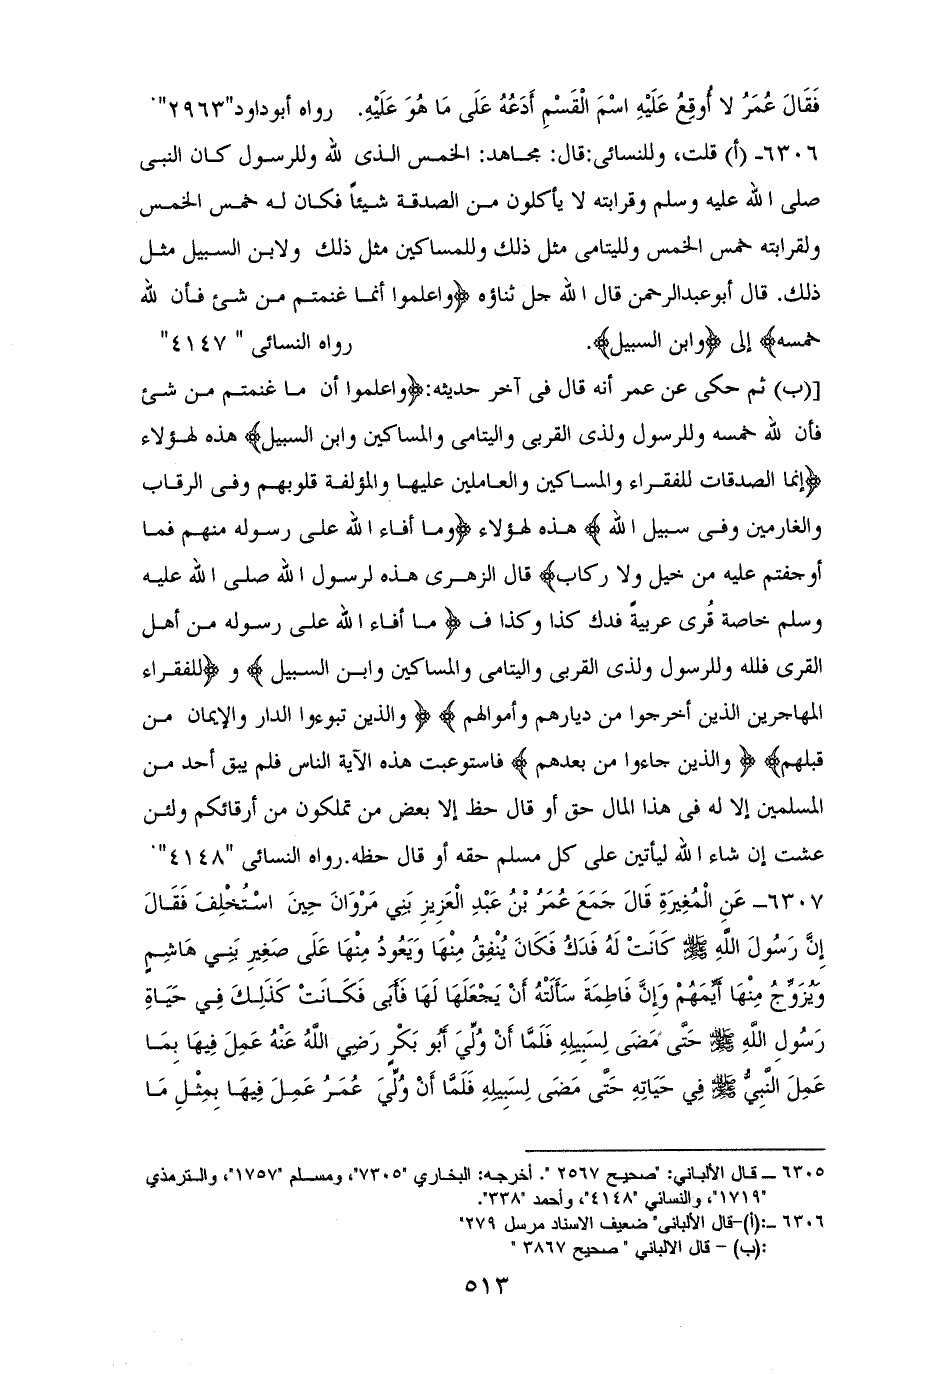 فَقَالَ عُمَرُ لا أُوقِعُ عَلَيْهِ اسْمَ الْقَسْمِ أَدَعُهُ عَلَى مَا هُوَ عَلَيْهِ. رواه أبوداود"٢٩٦٣".
٦٣٠٦- (أ) قلت، وللنسائى:قال: مجاهد: الخمس الذى لله وللرسول كان النبى
صلى الله عليه وسلم وقرابته لا يأكلون من الصدقة شيئاً فكان له خمس الخمس
ولقرابته خمس الخمس ولليتامى مثل ذلك وللمساكين مثل ذلك ولابن السبيل مثل
ذلك. قال أبوعبدالرحمن قال الله جل ثناؤه ﴿واعلموا أنما غنمتم من شئ فأن لله
خمسه﴾ إلى ﴿وابن السبيل﴾. رواه النسائى " ٤١٤٧"
[(ب) ثم حكى عن عمر أنه قال فى آخر حديثه:﴿واعلموا أن ما غنمتم من شئ
فأن لله خمسه وللرسول ولذى القربى واليتامى والمساكين وابن السبيل﴾ هذه لهؤلاء
﴿إنما الصدقات للفقراء والمساكين والعاملين عليها والمؤلفة قلوبهم وفى الرقاب
والغارمين وفى سبيل الله ﴾ هذه لهؤلاء ﴿وما أفاء الله على رسوله منهم فما
أوجفتم عليه من خيل ولا ركاب﴾ قال الزهرى هذه لرسول الله صلى الله عليه
وسلم خاصة قُرى عربيةً فدك كذا وكذا ف ﴿ ما أفاء الله على رسوله من أهل
القرى فلله وللرسول ولذى القربى واليتامى والمساكين وابن السبيل ﴾ و ﴿للفقراء
المهاجرين الذين أخرجوا من ديارهم وأموالهم ﴾ ﴿ والذين تبوءوا الدار والإيمان من
قبلهم﴾ ﴿ والذين جاءوا من بعدهم ﴾ فاستوعبت هذه الآية الناس فلم يبق أحد من
المسلمين إلا له فى هذا المال حق أو قال حظ إلا بعض من تملكون من أرقائكم ولئن
عشت إن شاء الله ليأتين على كل مسلم حقه أو قال حظه.رواه النسائى "٤١٤٨".
٦٣٠٧- عَنِ الْمُغِيرَةِ قَالَ جَمَعَ عُمَرُ بْنُ عَبْدِ الْعَزِيزِ بَنِي مَرْوَانَ حِينَ اسْتُخْلِفَ فَقَالَ
إِنَّ رَسُولَ اللَّهِ ﷺ كَانَتْ لَهُ فَدَكُ فَكَانَ يُنْفِقُ مِنْهَا وَيَعُودُ مِنْهَا عَلَى صَغِيرِ بَنِي هَاشِمٍ
وَيُزَوِّجُ مِنْهَا أَيِّمَهُمْ وَإِنَّ فَاطِمَةَ سَأَلَتْهُ أَنْ يَجْعَلَهَا لَهَا فَأَبَى فَكَانَتْ كَذَلِكَ فِي حَيَاةِ
رَسُولِ اللَّهِ ﷺ حَتَّى مَضَى لِسَبِيلِهِ فَلَمَّا أَنْ وُلِّيَ أَبُو بَكْرٍ رَضِي اللَّهُ عَنْهُ عَمِلَ فِيهَا بِمَا
عَمِلَ النَّبِيُّ ﷺ فِي حَيَاتِهِ حَتَّى مَضَى لِسَبِيلِهِ فَلَمَّا أَنْ وُلِّيَ عُمَرُ عَمِلَ فِيهَا بِمِثْلِ مَا
٦٣٠٥ - قال الألباني: "صحيح ٢٥٦٧ ". أخرجه: البخاري "٧٣٠٥"، ومسلم "١٧٥٧"، والترمذي
"١٧١٩"، والنسائي "٤١٤٨"، وأحمد "٣٣٨".
٦٣٠٦ -:(أ)-قال الألبانى" ضعيف الاسناد مرسل ٢٧٩"
:(ب) - قال الالباني " صحيح ٣٨٦٧ "
٥١٣